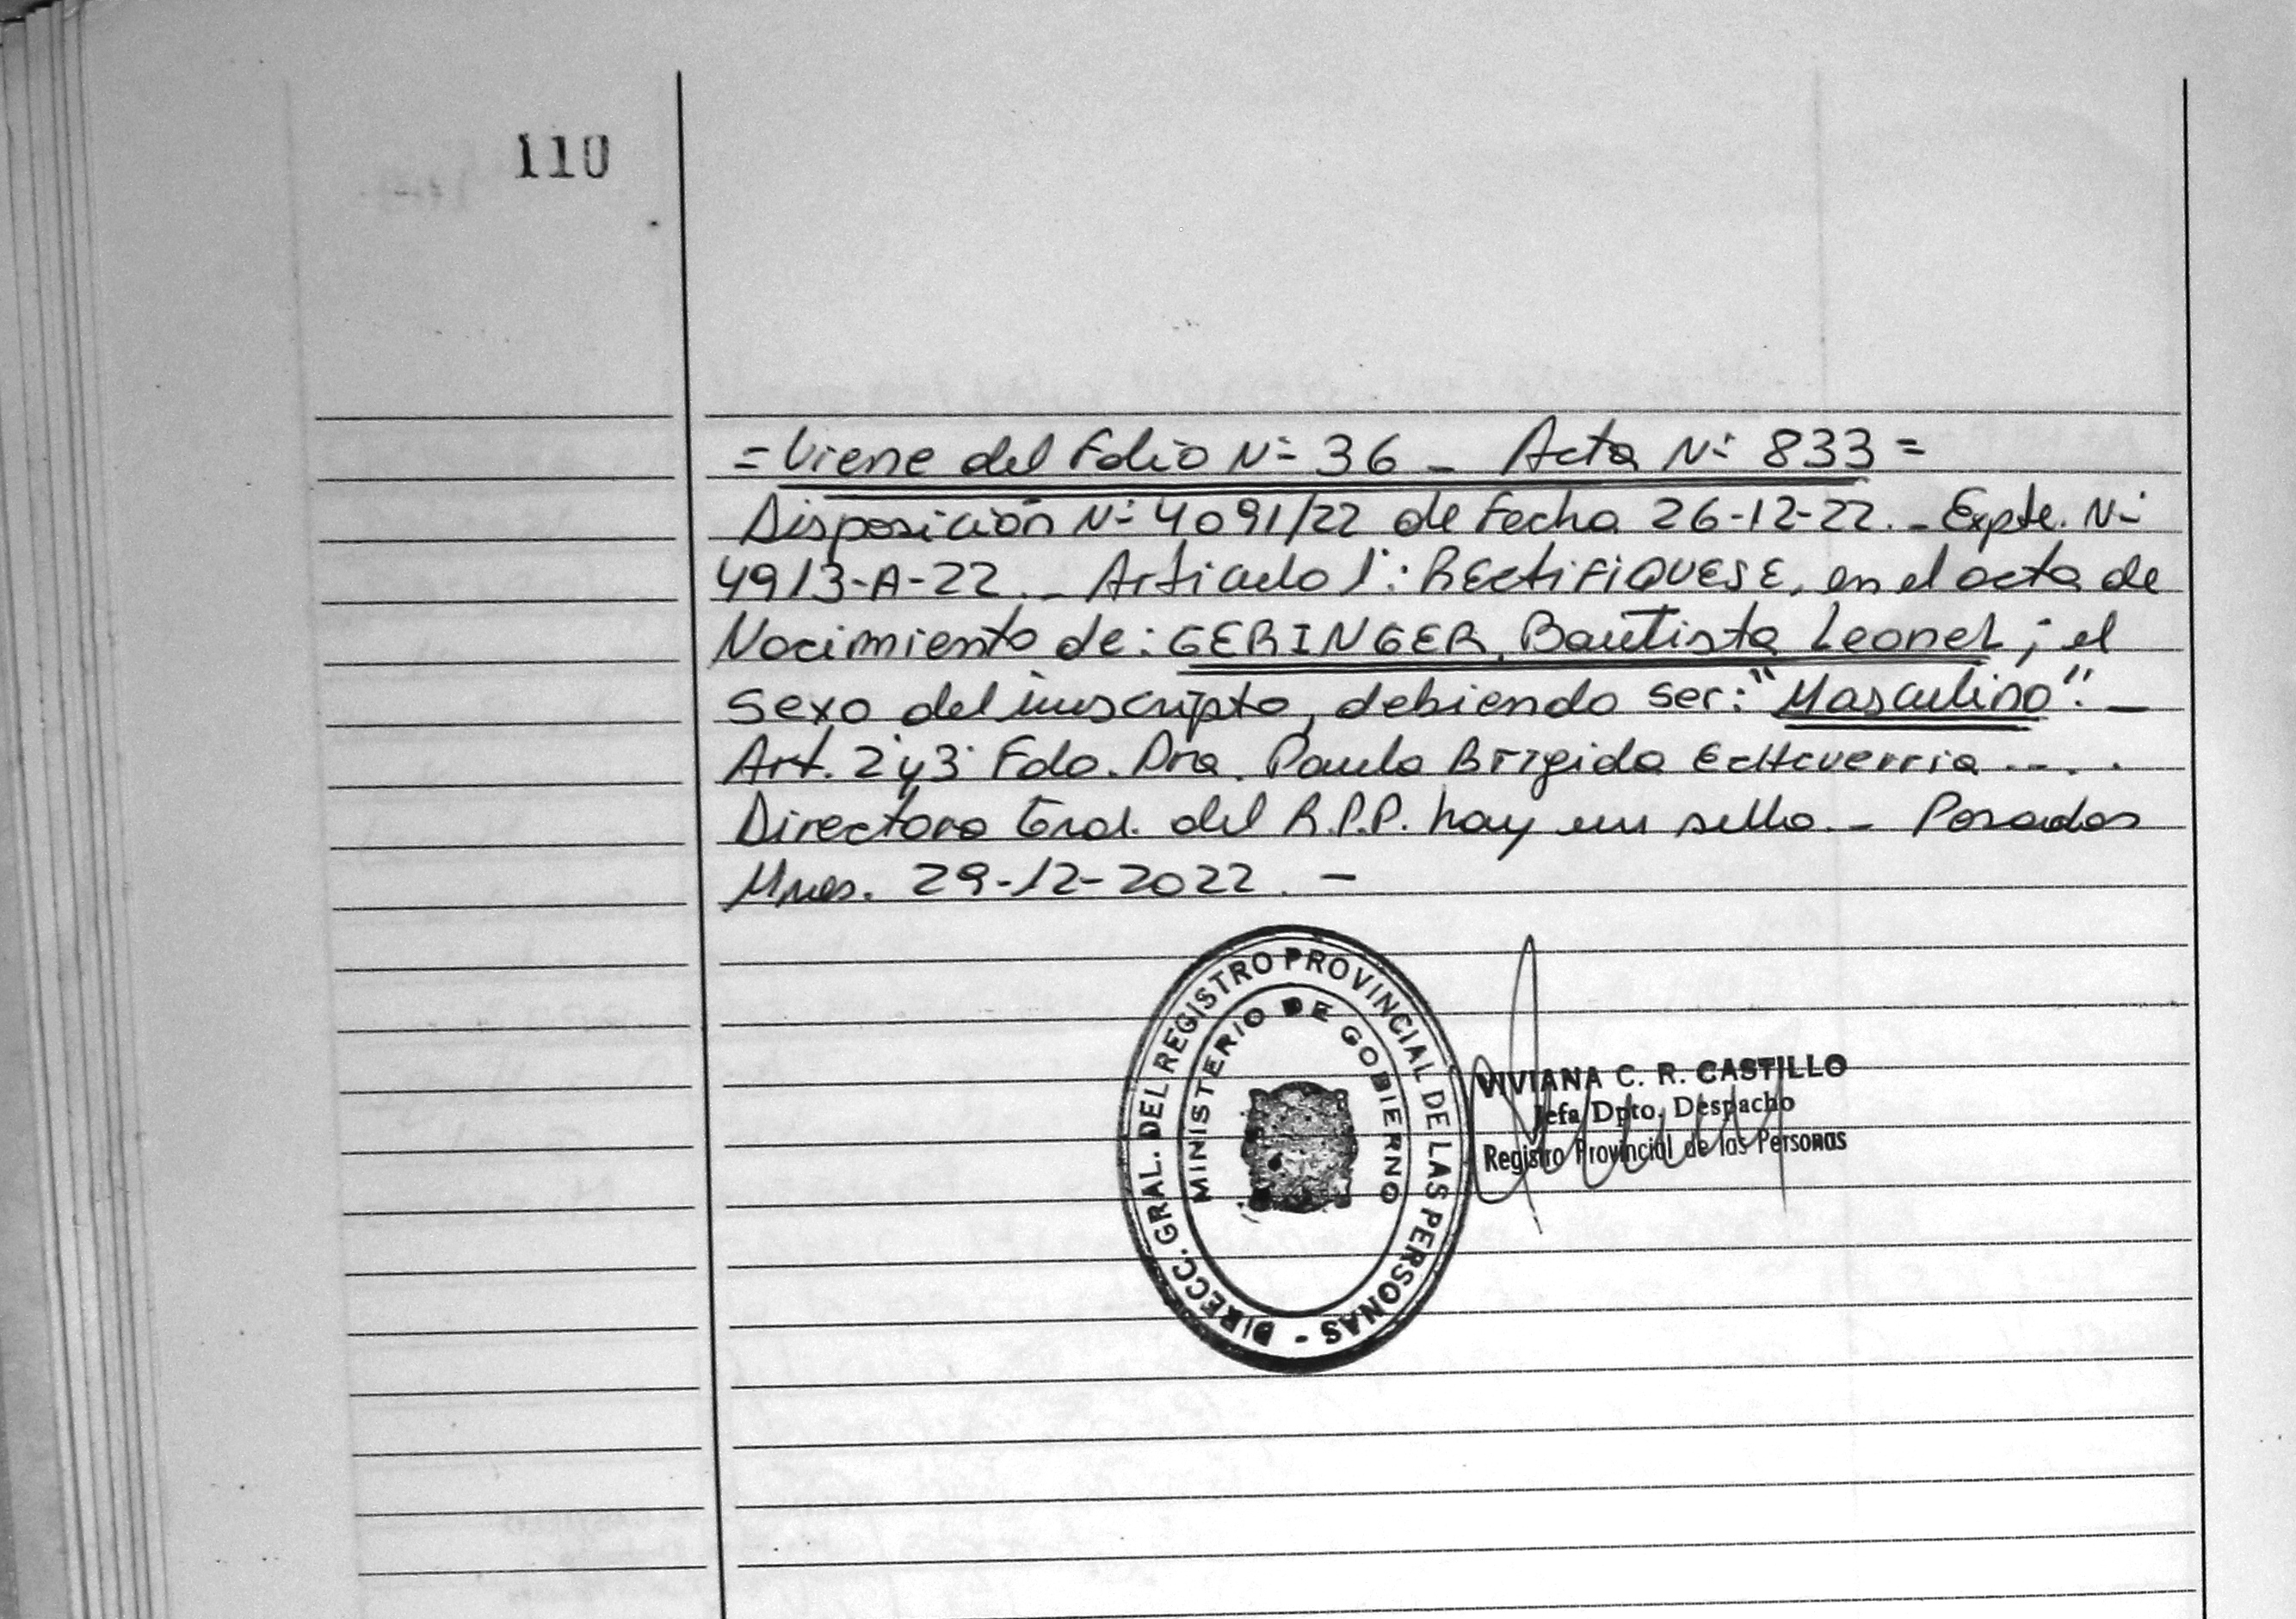 110
= Viene del Folio N° 36 - Acta N° 833 =
Disposición N° 4091/22 de Fecha 26-12-22. - Expte. N°
4913-A-22. - Articulo 1°: RECTIFIQUESE, en el acta de
Nacimiento de: GERINGER, Bautista Leonel; el
sexo del inscripto, debiendo ser: "Masculino". -
Art. 2° y 3° Fdo. Dra. Paula Brigida Echeverria ....
Directora Gral. del R.P.P. hay un sello. - Posadas
Mnes. 29-12-2022. -
DIRECC. GRAL. DEL REGISTRO PROVINCIAL DE LAS PERSONAS -
MINISTERIO DE GOBIERNO
VIVIANA C. R. CASTILLO
Jefa Dpto. Despacho
Registro Provincial de las Personas